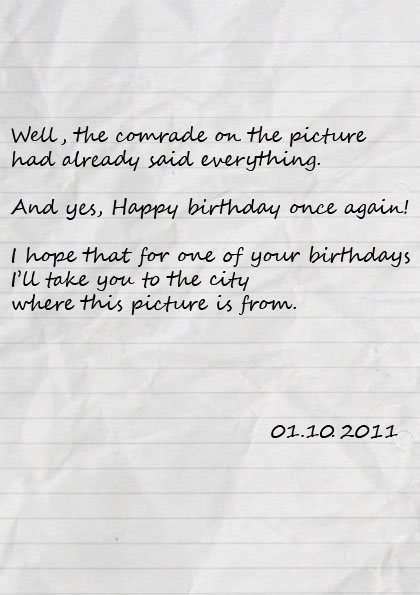 Well, the comrade on the picture
had already said everything.
And yes, Happy birthday once again!
I hope that for one of your birthdays
I'll take you to the city
where this picture is from.
01.10.2011